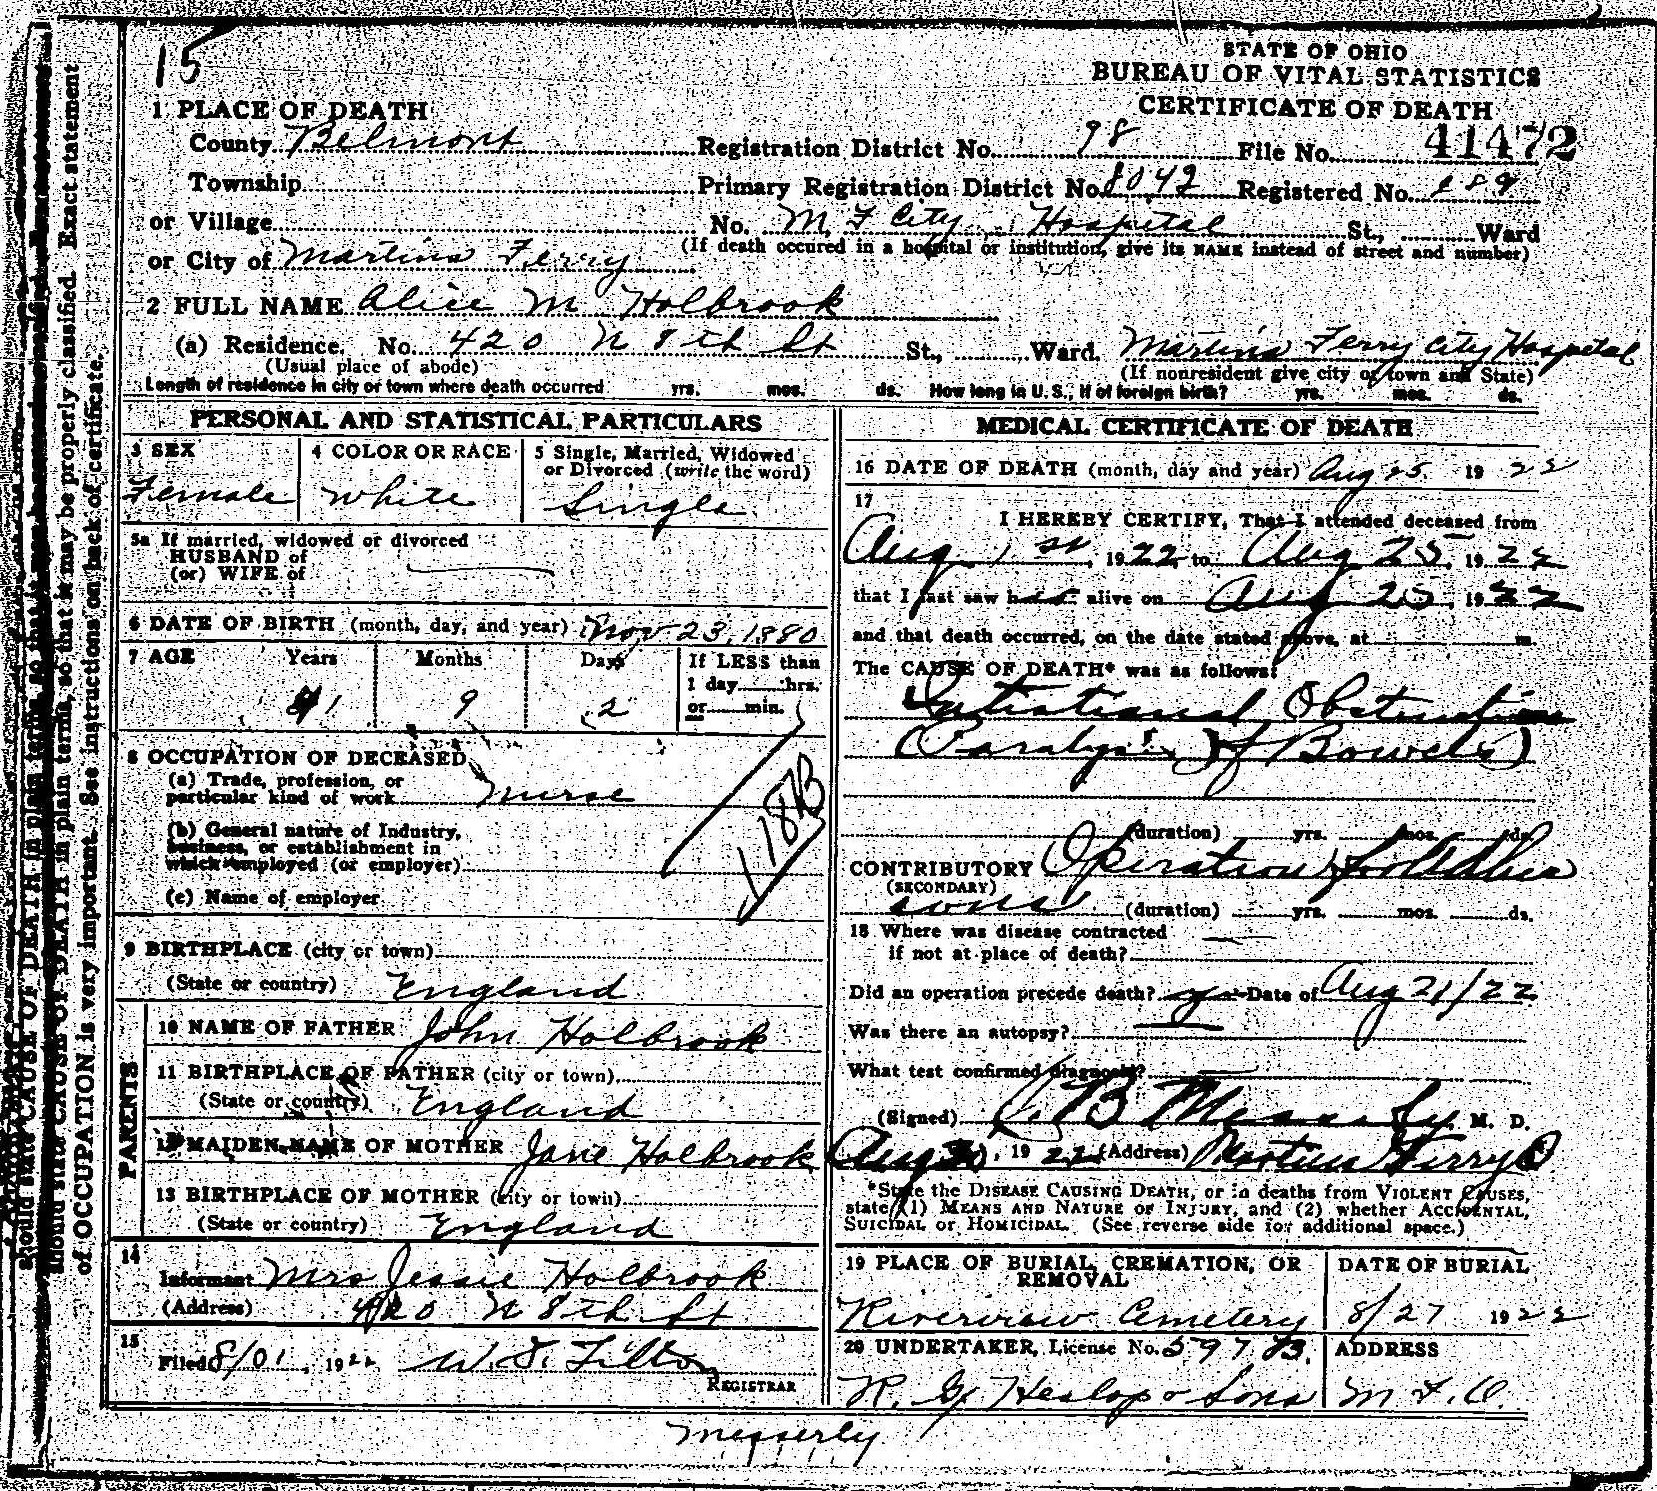 15
STATE OF OHIO
BUREAU OF VITAL STATISTICS
CERTIFICATE OF DEATH
1 PLACE OF DEATH
County Belmont Registration District No. 98 File No. 41472
Township Primary Registration District No. 8042 Registered No.
or Village No. M. F. City Hospital St., Ward
(If death occured in a hospital or institution, give its NAME instead of street and number)
or City of Martins Ferry
2 FULL NAME Alice M Holbrook
(a) Residence. No. 420 N 8th St St., Ward. Martins Ferry City Hospital
(Usual place of abode) (If nonresident give city or town and State)
Length of residence in city or town where death occurred yrs. mos. ds. How long in U. S., if of foreign birth? yrs. mos. ds.
PERSONAL AND STATISTICAL PARTICULARS
3 SEX 4 COLOR OR RACE 5 Single, Married, Widowed
or Divorced (write the word)
Female White Single
5a If married, widowed or divorced
HUSBAND of
(or) WIFE of
6 DATE OF BIRTH (month, day, and year) Nov 23, 1880
7 AGE Years Months Days If LESS than
1 day hrs.
41 9 2 or min.
8 OCCUPATION OF DECEASED
(a) Trade, profession, or
particular kind of work nurse
(b) General nature of Industry,
business, or establishment in
which employed (or employer)
(c) Name of employer
9 BIRTHPLACE (city or town)
(State or country) England
PARENTS
10 NAME OF FATHER John Holbrook
11 BIRTHPLACE OF FATHER (city or town)
(State or country) England
12 MAIDEN NAME OF MOTHER Jane Holbrook
13 BIRTHPLACE OF MOTHER (city or town)
(State or country) England
14
Informant Mrs Jessie Holbrook
(Address) 420 N 8th St
15
Filed 8/01, 1922 W. S. Tilton
REGISTRAR
MEDICAL CERTIFICATE OF DEATH
16 DATE OF DEATH (month, day and year) Aug 25 1922
17
I HEREBY CERTIFY, That I attended deceased from
Aug 1st, 1922 to Aug 25, 1922
that I last saw alive on Aug 25, 1922
and that death occurred, on the date stated above, at m.
The CAUSE OF DEATH* was as follows:
Intestional Obstruction
(Paralysis of Bowels)
(duration) yrs. mos. ds.
CONTRIBUTORY Operation for Adhe
(SECONDARY)
sions (duration) yrs. mos. ds.
18 Where was disease contracted
if not at place of death?
Did an operation precede death? yes Date of Aug 21/22
Was there an autopsy?
What test confirmed diagnosis?
(Signed) B Messerly M. D.
Aug, 1922 (Address) Martins Ferry O
*State the DISEASE CAUSING DEATH, or in deaths from VIOLENT CAUSES,
state (1) MEANS AND NATURE OF INJURY, and (2) whether ACCIDENTAL,
SUICIDAL or HOMICIDAL. (See reverse side for additional space.)
19 PLACE OF BURIAL, CREMATION, OR
REMOVAL
DATE OF BURIAL
Riverview Cemetery 8/27 1922
20 UNDERTAKER, License No. 597 B. ADDRESS
R. G. Heslop & Sons M. F. O.
Messerly
should state CAUSE OF DEATH in plain terms, so that it may be properly classified. Exact statement
of OCCUPATION is very important. See instructions on back of certificate.